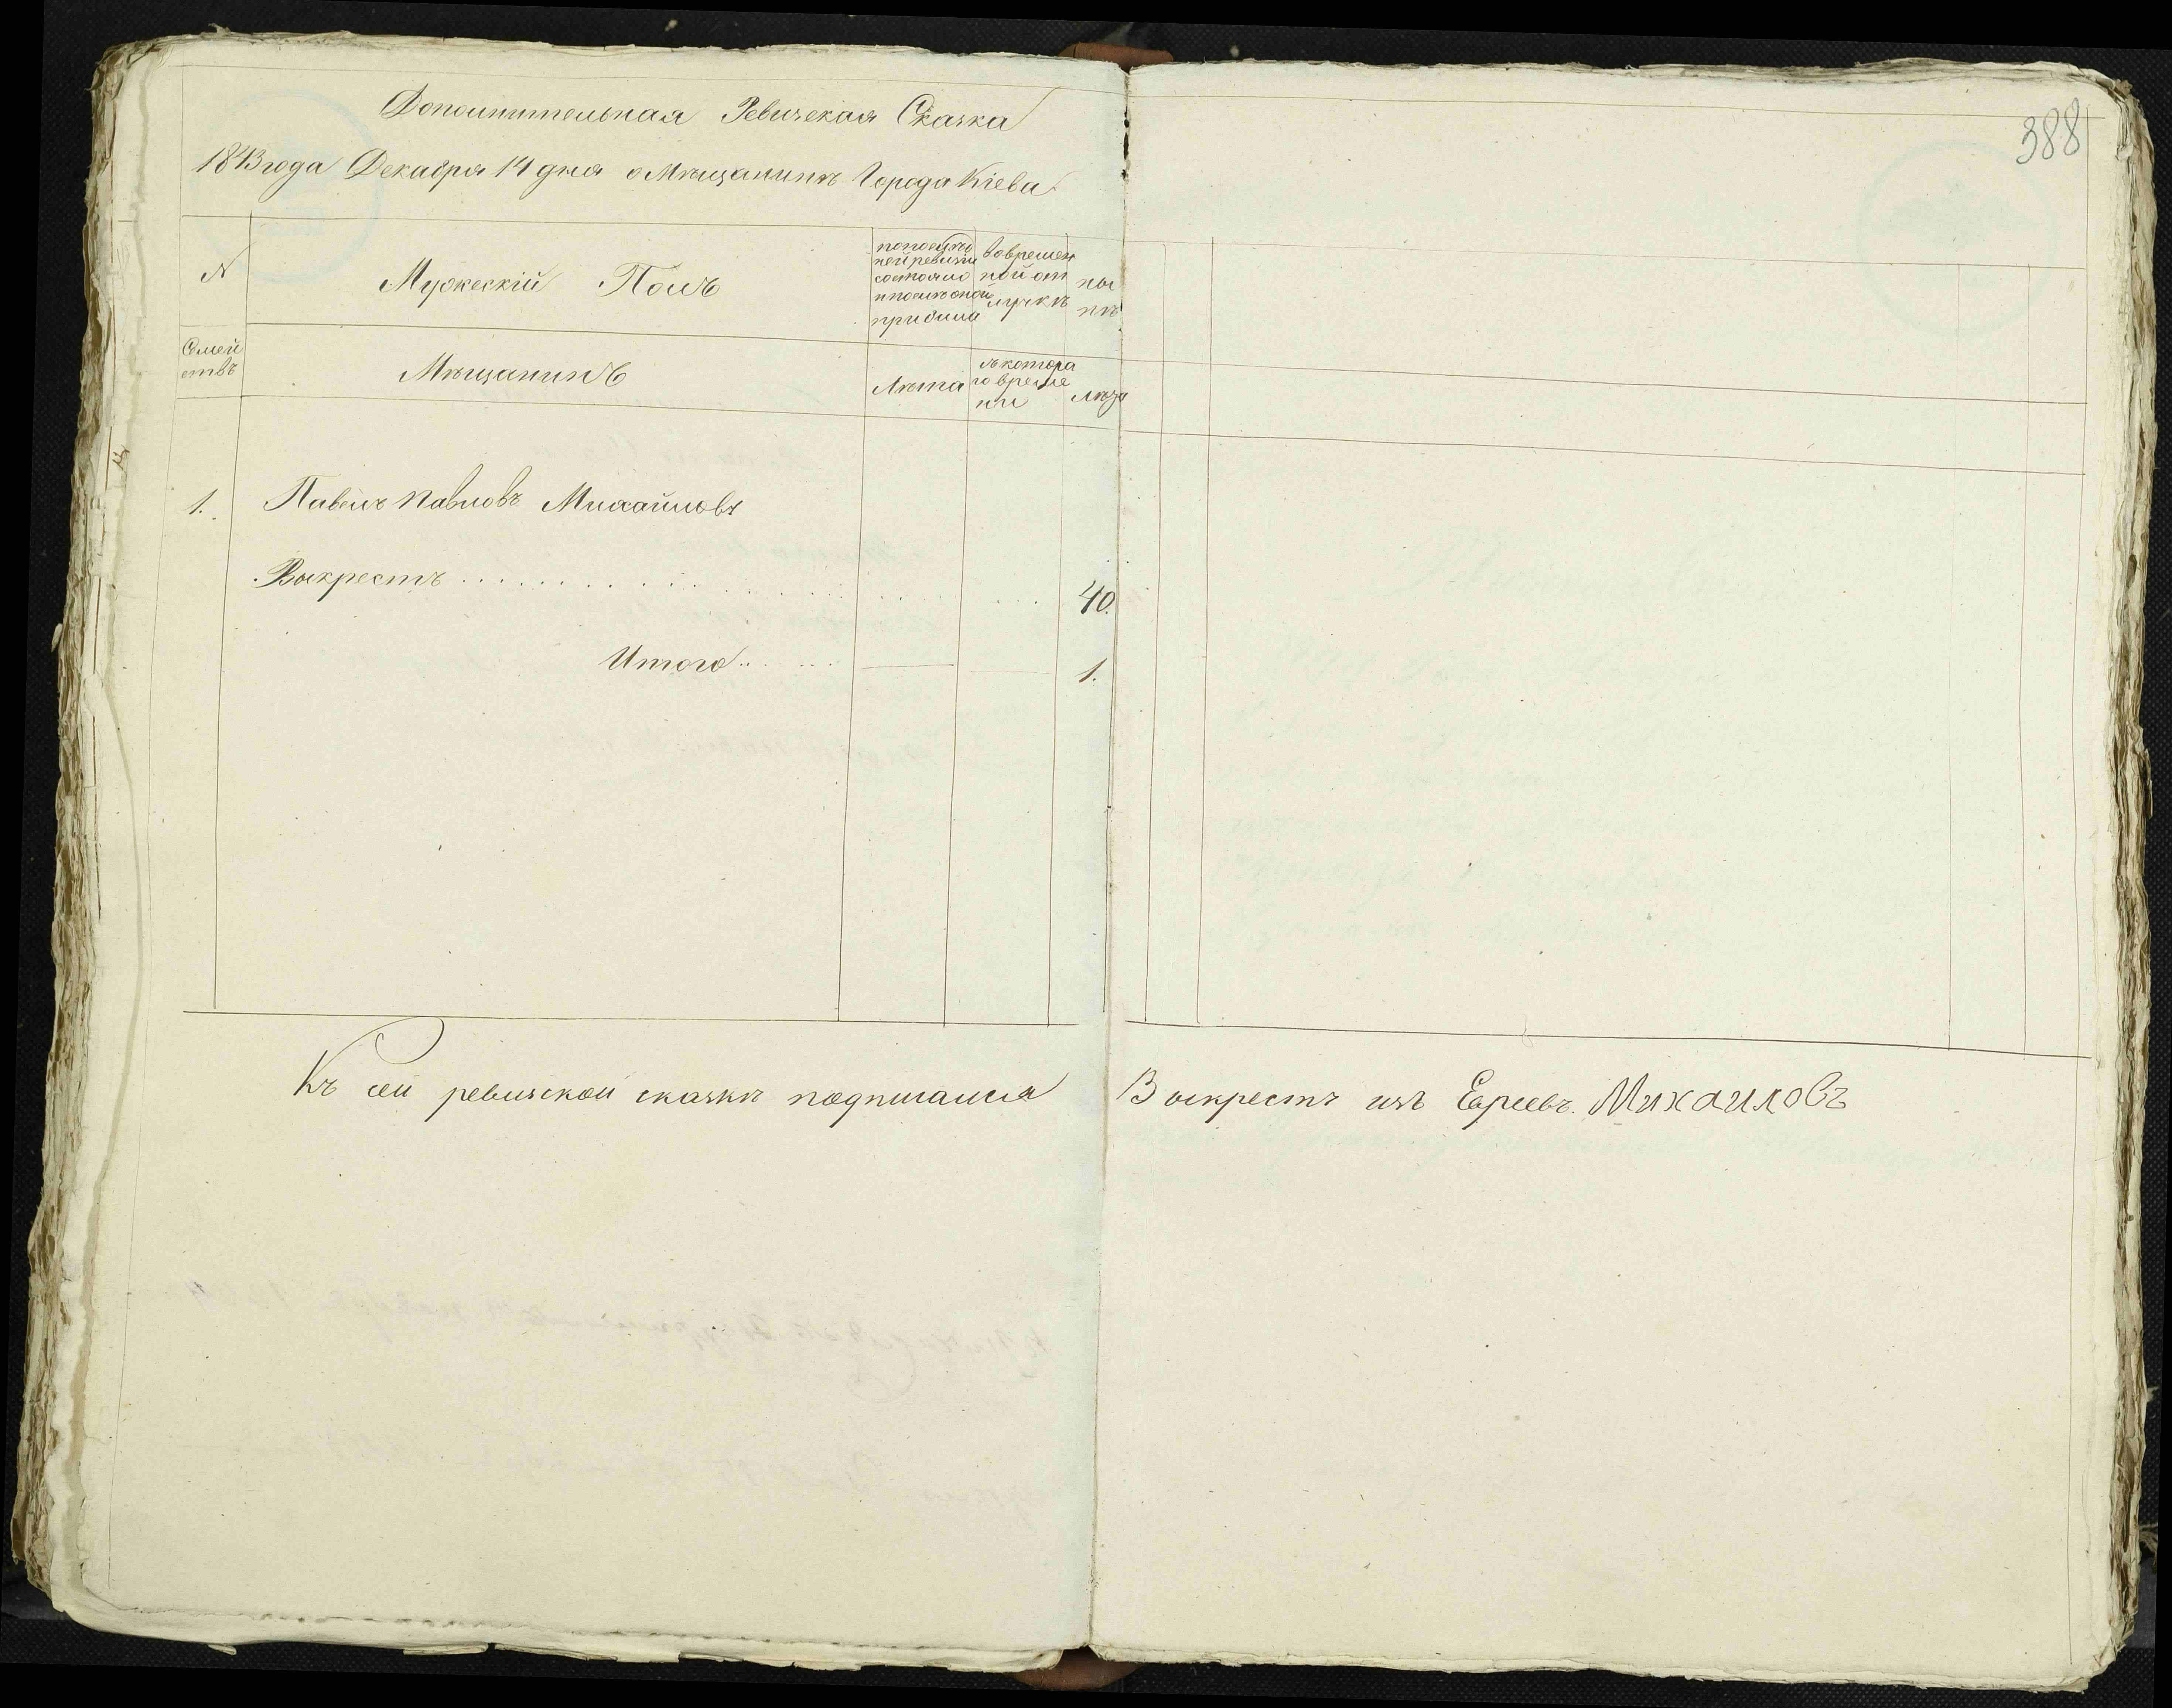 388
Дополнительная Ревизская Сказка
1843 года Декабря 14 дня о Мѣщанинѣ Города Кіева
N
Мужескій Полъ
по послѣд
ней ревизіи
состояло
и послѣ оной
прибыло
во времен
ной от
лучкѣ
ны
нѣ
Семей
ствъ
Мѣщанинъ
Лѣта
съ котора
го време
ни
лѣта
1. Павелъ Павловъ Михайловъ
Выкрестъ . . . . . . . . . . 40.
Итого . . . . . 1.
Къ сей ревизской сказкѣ подписался Выкрестъ изъ Евреевъ. Михаиловъ